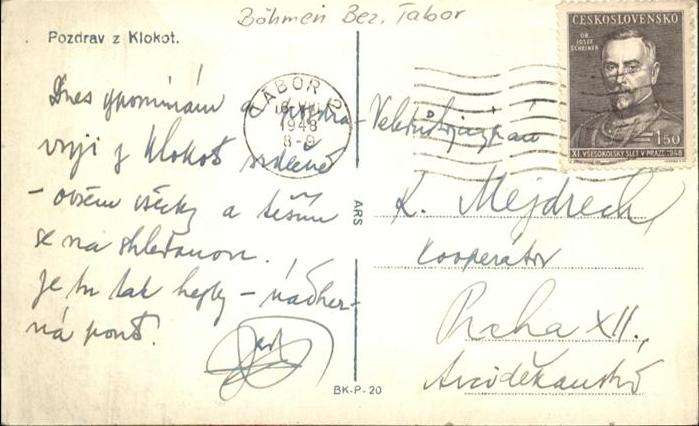 Böhmen Bez. Tabor
Pozdrav z Klokot.
TÁBOR 2
1948
8-9
ČESKOSLOVENSKO
DR.
JOSEF
SCHEINER
1·50
XI. VŠESOKOLSKÝ SLET V PRAZE 1948
Dnes vzpomínám a
z Klokot srdečně
– ovšem všecky a těším
se na shledanou.
je tu tak hezky – nádher-
ná pouť.
ARS
BK-P-20
K. Mejdrech
Kooperátor
Praha XII.,
Arciděkanství